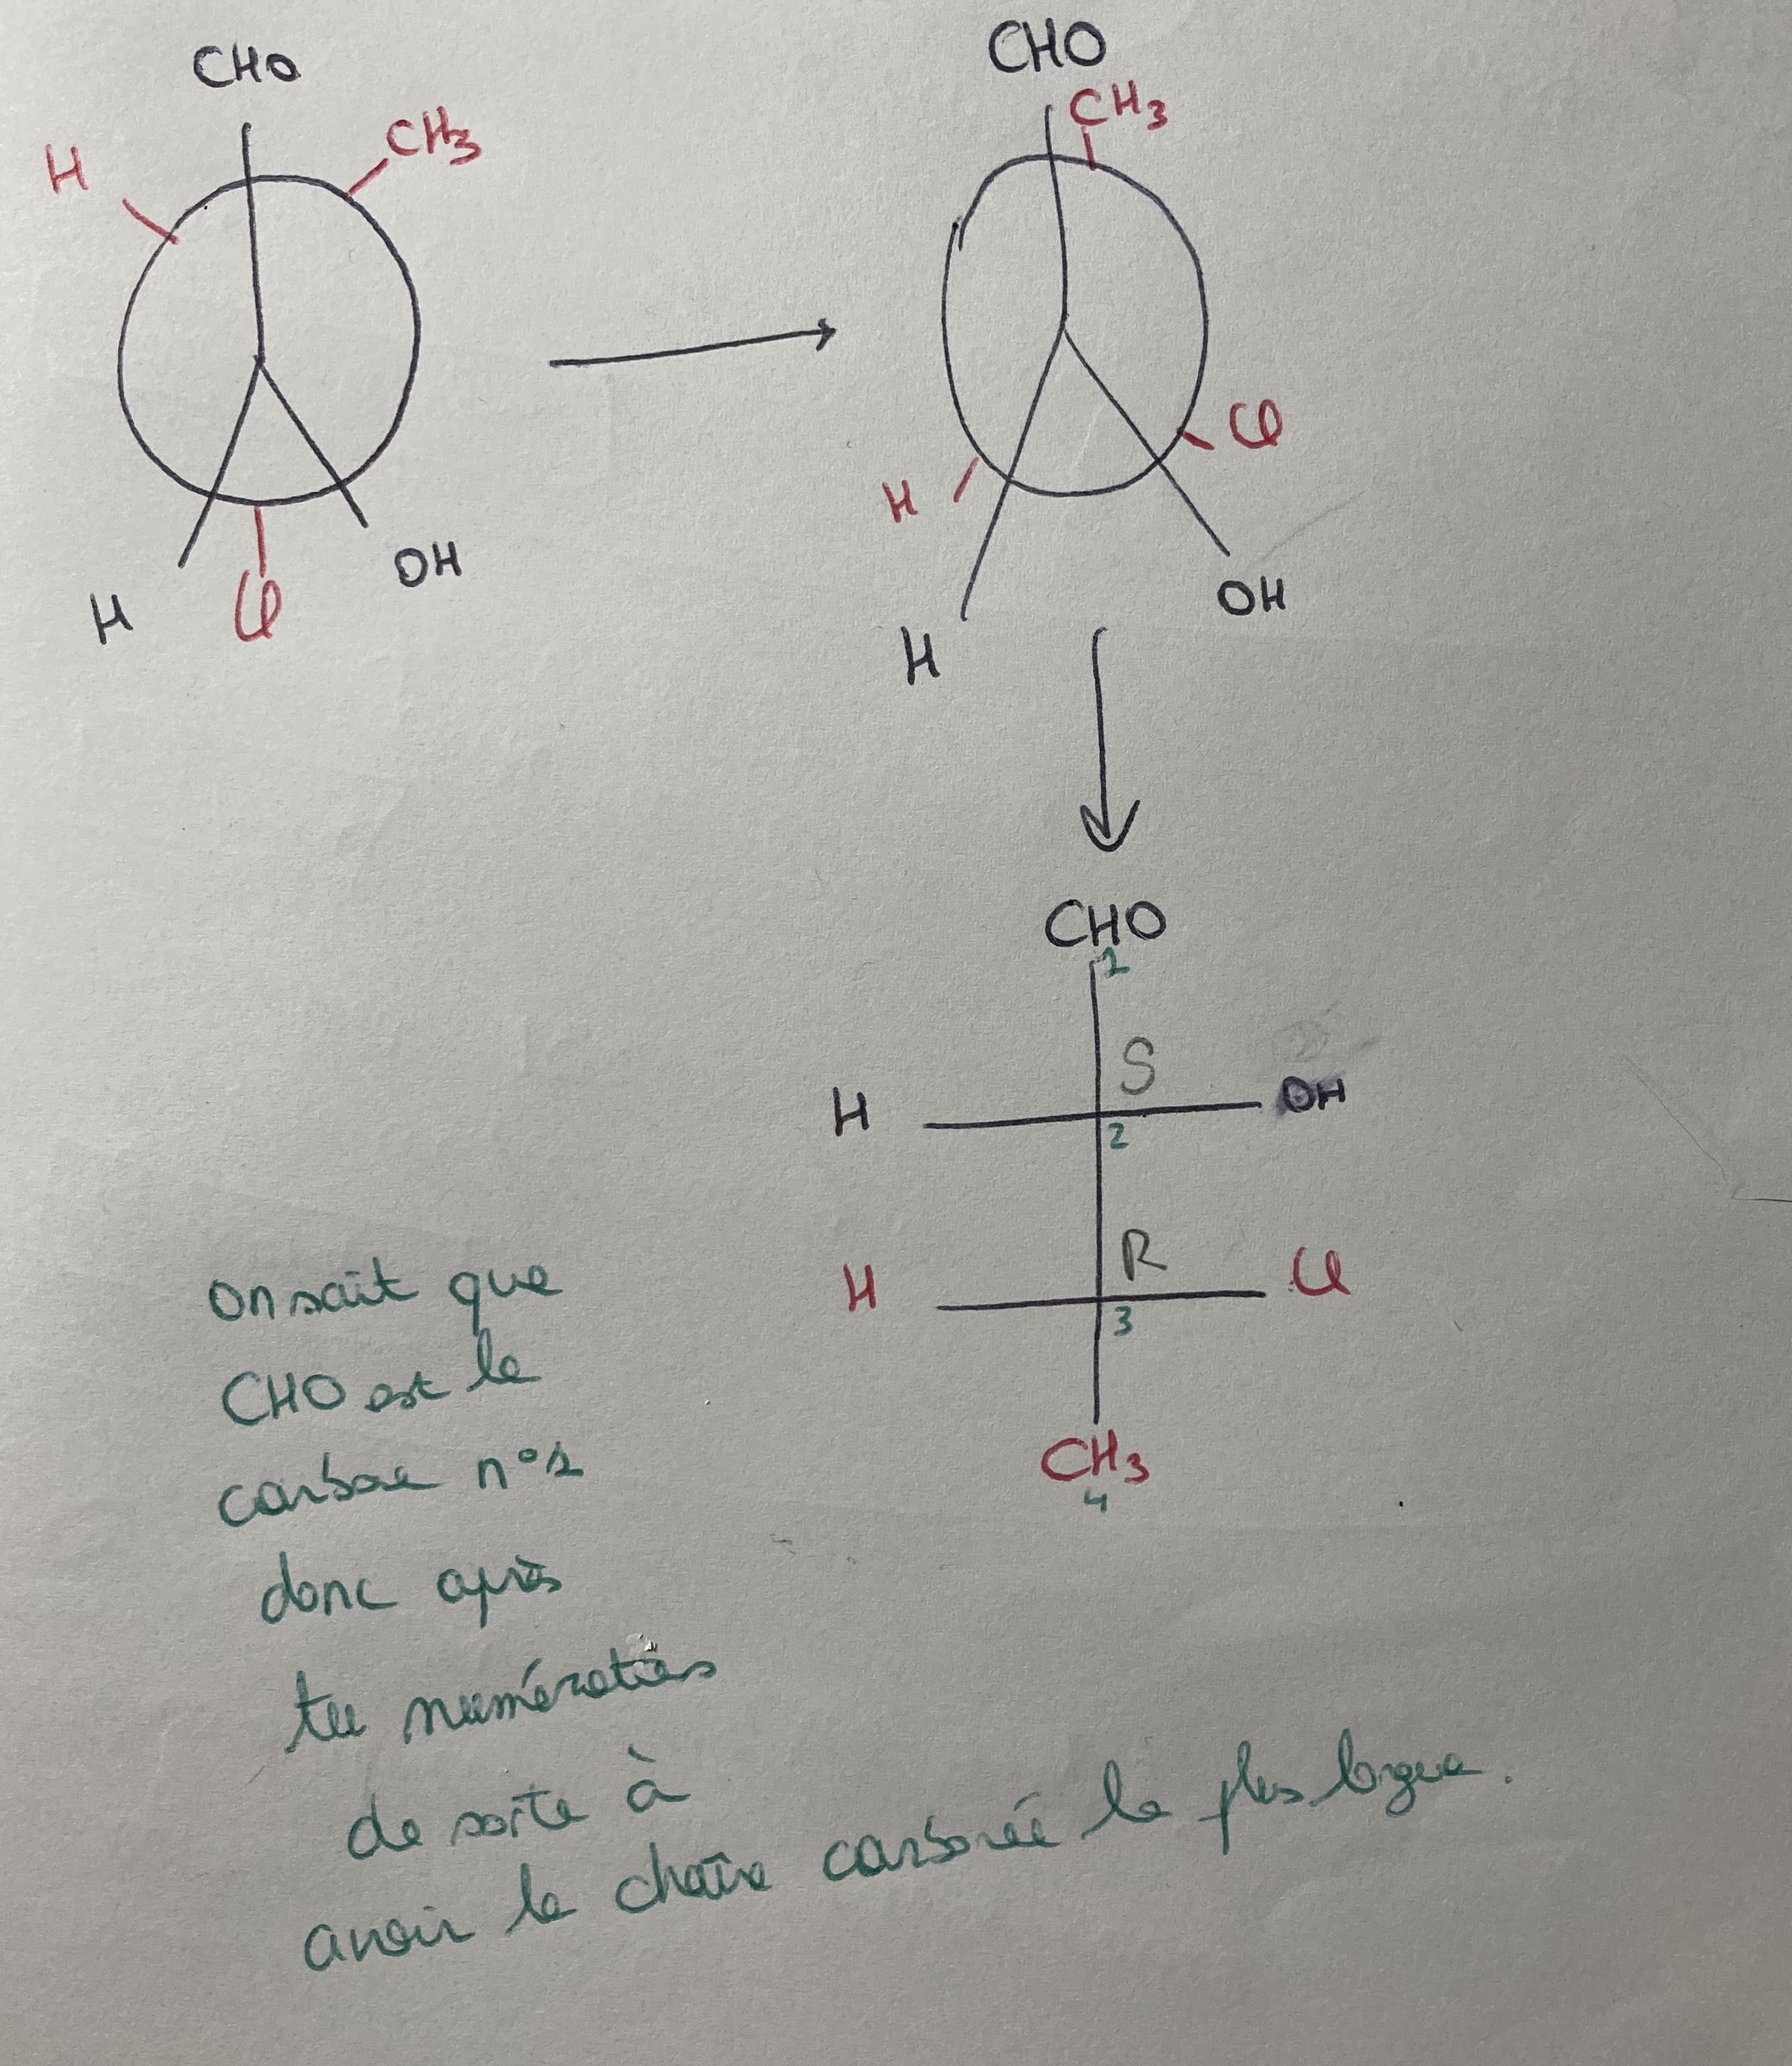 CHO
H
CH3
H
Cl
OH
CHO
CH3
H
Cl
H
OH
CHO
1
S
H
OH
2
R
H
Cl
3
CH3
4
On sait que
CHO est le
carbone n°1
donc après
tu numérotes
de sorte à
avoir la chaîne carbonée la plus longue.